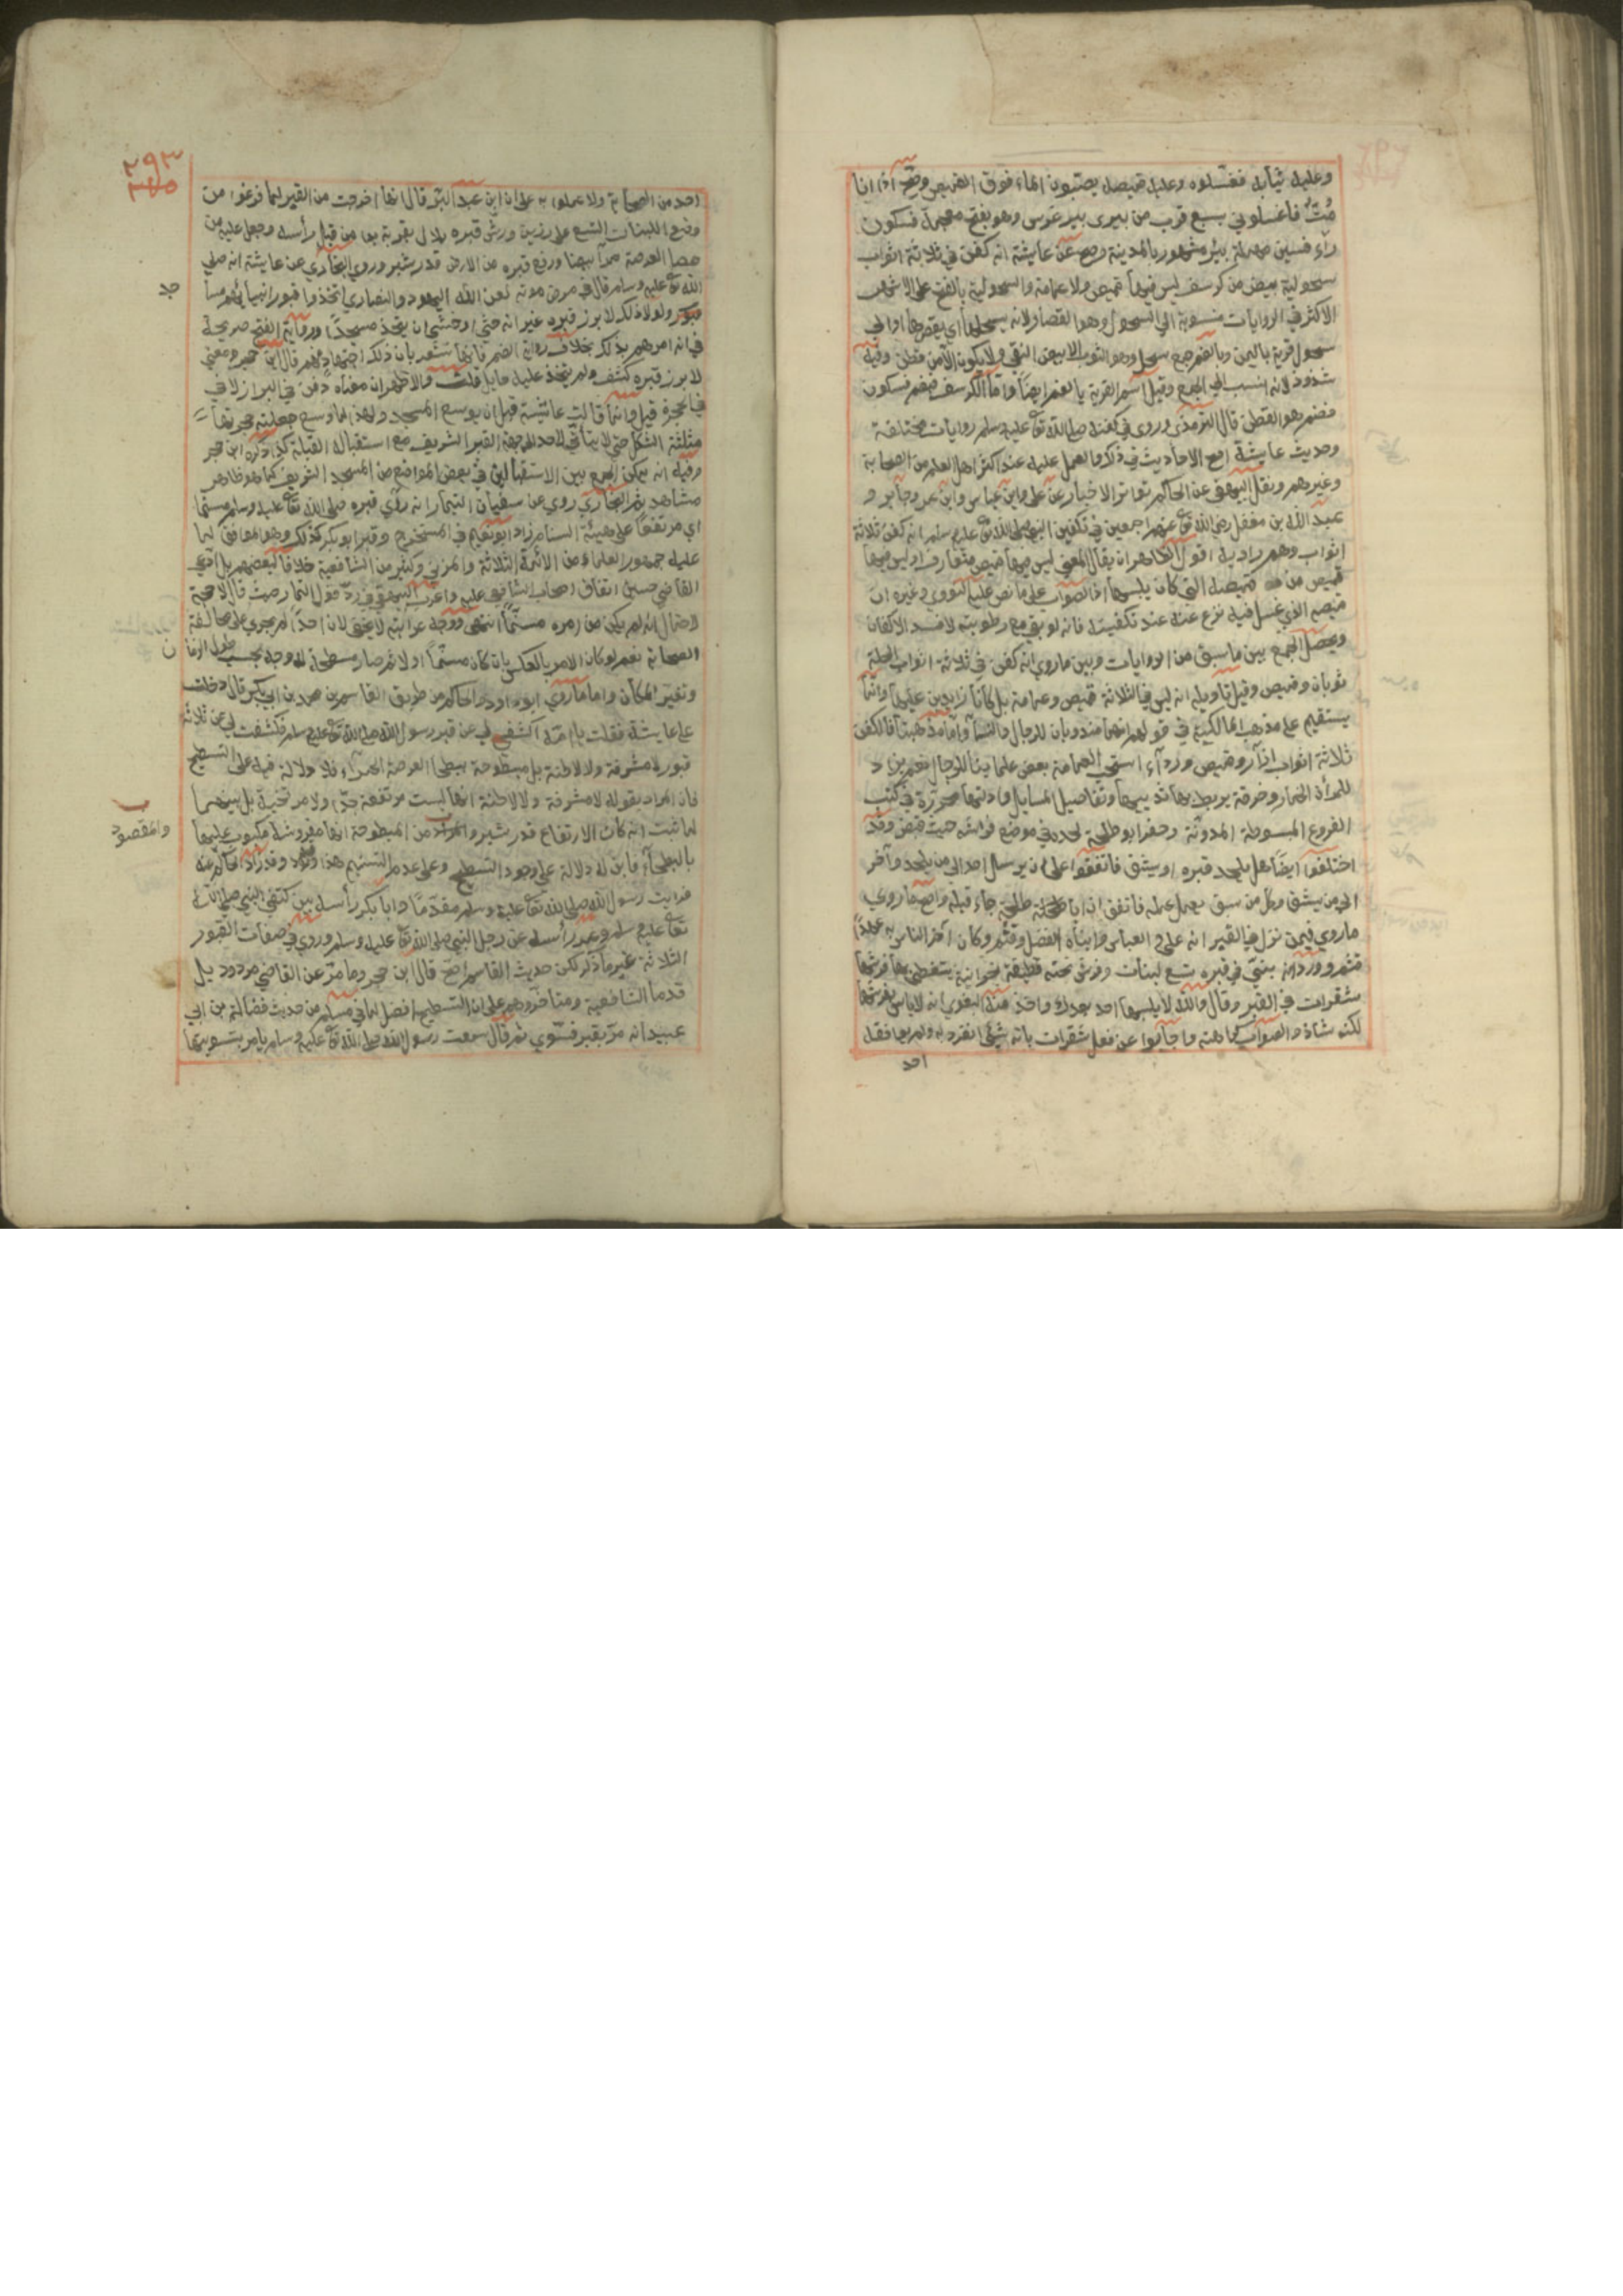 وعليه ثيابه فغسلوه وعليه قميصه يصبون الماء فوق القميص وصح اذا انا
مت فاغسلوني بسبع قرب من بيرى بير غرس وهو بفتح معجمة فسكون
راء فسين مهملة بئر مشهور بالمدينة وصح عن عايشة انه كفن في ثلاثة اثواب
سحولية بيض من كرسف ليس فيها قميص ولا عمامة والسحولية بالفتح على الاشهر
الاكثر في الروايات منسوبة الى السحول وهو القصار لانه يسحلها اي يقصرها او الى
سحول قرية باليمن وبالضم جمع سحل وهو الثوب الابيض النقي ولا يكون الا من قطن وفيه
شذوذ لانه نسب الى الجمع وقيل اسم القرية بالضم ايضا واما الكرسف فبضم فسكون
فضم هو القطن قال الترمذي وروى في كفنه صلى الله تع عليه وسلم روايات مختلفة
وحديث عايشة اصح الاحاديث في ذلك والعمل عليه عند اكثر اهل العلم من الصحابة
وغيرهم ونقل البيهقي عن الحاكم تواتر الاخبار عن علي وابن عباس وابن عمر وجابر و
عبد الله بن مغفل رضي الله تع عنهم اجمعين في تكفين النبي صلى الله تع عليه وسلم انه كفن ثلاثة
اثواب وهم رادية اقول الظاهر ان يقال المعنى ليس فيها قميص متعارف او ليس فيها
قميص من قميصه التي كان يلبسها اذ الصواب على ما نص عليه النووي وغيره ان
قميصه الذي غسل فيه نزع عنه عند تكفينه فانه لو بقي مع رطوبته لافسد الاكفان
ويحصل الجمع بين ما سبق من الروايات وبين ما روي انه كفن في ثلاثة اثواب الحلة
ثوبان وقميص وقيل تاويله انه ليس في الثلاثة قميص وعمامة بل كانا زايدين عليها وانما
يستقيم على مذهب المالكية في قولهم انهما مندوبان للرجال والنسا واما مذهبنا فالكفن
ثلاثة اثواب ازار وقميص ورداء استحب العمامة بعض علماينا للرجال نعم يزد
للمرأة الخمار وخرقة يربط بها ثدييها وتفاصيل المسايل وادلتها محررة في كتب
الفروع المبسوطة المدونة وحفر ابو طلحة لحده في موضع فراشه حيث قبض وقد
اختلفوا ايضا هل يلحد قبره او يشق فاتفقوا على ان يرسل احد الى من يلحد وآخر
الى من يشق وكل من سبق يعمل عمله فاتفق ان ابا طلحة جاء قبله واصح ما روي
ما روي فيمن نزل في القبر انه علي والعباس وابناه الفضل وقثم وكان آخر الناس به عهدا
قثم وورد انه بنى في قبره تسع لبنات وفرش تحته قطيفة نجرانية يتغطى بها فرشها
شقران في القبر وقال والله لا يلبسها احد بعدك واخذ منه البغوي انه لا باس بفرشها
لكنه شاذ والصواب كراهته واجابوا عن فعل شقران بانه شيئ انفرد به ولم يوافقه
احد
٢٩٣
احد من الصحابة ولا عملوا به على ان ابن عبد البر قال انها اخرجت من القبر لما فرغوا من
وضع اللبنات التسع على رزين ورش قبره بلال بقربة بدا من قبل رأسه وجعل عليه من
حصا العرصة حمرا بيضا ورفع قبره من الارض قدر شبر وروى البخاري عن عايشة انه صلى
الله تع عليه وسلم قال في مرض موته لعن الله اليهود والنصارى اتخذوا قبور انبيائهم مسا
جد
ولولا ذلك لابرز قبره غير انه خشي او خشي ان يتخذ مسجدا ورواية الفتح صريحة
في انه امرهم بذلك بخلاف رواية الضم فانها تشعر بان ذلك اجتهاد منهم قال ابن حجر ومعنى
لابرز قبره كشف ولم يتخذ عليه حايل قلت والاظهر ان معناه دفن في البراز لا في
في الحجرة قيل وانما قالت عائشة قبل ان يوسع المسجد ولهذا لما وسع جعلت حجرتها
مثلثة الشكل حتى لا يتأتى لاحد الى جهة القبر الشريف مع استقباله القبلة كذا ذكره ابن حجر
وفيه انه يمكن الجمع بين الاستقبالين في بعض المواضع من المسجد الشريف كما هو ظاهر
مشاهد ثم البخاري روى عن سفيان التمار انه رأى قبره صلى الله تع عليه وسلم مسنما
اي مرتفعا على هيئة السنام زاد ابو نعيم في المستخرج وقبر ابو بكر كذلك وهو الموافق لما
عليه جمهور العلماء من الائمة الثلاثة والمزني وكثير من الشافعية خلافا لبعضهم بل ادعى
القاضي حسين اتفاق اصحاب الشافعي عليه واغرب البيهقي في رد قول التمار حيث قال لا حجة
لاحتمال انه لم يكن من زمره مسنما انتهى ووجه غرابته لا يخفى لان احدا لم يجري على مخالفة
الصحابة نعم لو كان الامر بالعكس بان كان مسنما اولا ثم صار مسطحا له وجه بحسب طول الزمان
وتغير المكان واما ما روى ابو داود والحاكم من طريق القاسم بن محمد بن ابي بكر قال دخلت
على عايشة فقلت يا امه اكشفي لي عن قبر رسول الله صلى الله تع عليه وسلم فكشفت لي عن ثلاثة
قبور لا مشرفة ولا لاطئة بل مبطوحة ببطحا العرصة الحمراء فلا دلالة فيه على التسطيح
فان المراد بقوله لا مشرفة ولا لاطئة انها ليست مرتفعة جدا ولا مرتخية بل بينهما
لما ثبت انه كان الارتفاع قدر شبر والمراد من المبطوحة انها مفروشة مكبوب عليها
والمقصود
بالبطحاء فاين له دلالة على وجود التسطيح وعلى عدم التسنيم هذا وقد زاد الحاكم عنه
فرايت رسول الله صلى الله تع عليه وسلم مقدما وابا بكر رأسه بين كتفي النبي صلى الله
تع عليه وسلم وعمر رأسه عن رجل النبي صلى الله تع عليه وسلم وروي في صفات القبور
الثلاثة غير ما ذكر لكن حديث القاسم اصح قال ابن حجر وما مر عن القاضي مردود بل
قدما الشافعية ومتاخروهم على ان التسطيح افضل لما في مسلم من حديث فضالة بن ابي
عبيد انه مر بقبر فسوي ثم قال سمعت رسول الله صلى الله تع عليه وسلم يامر بتسويتها